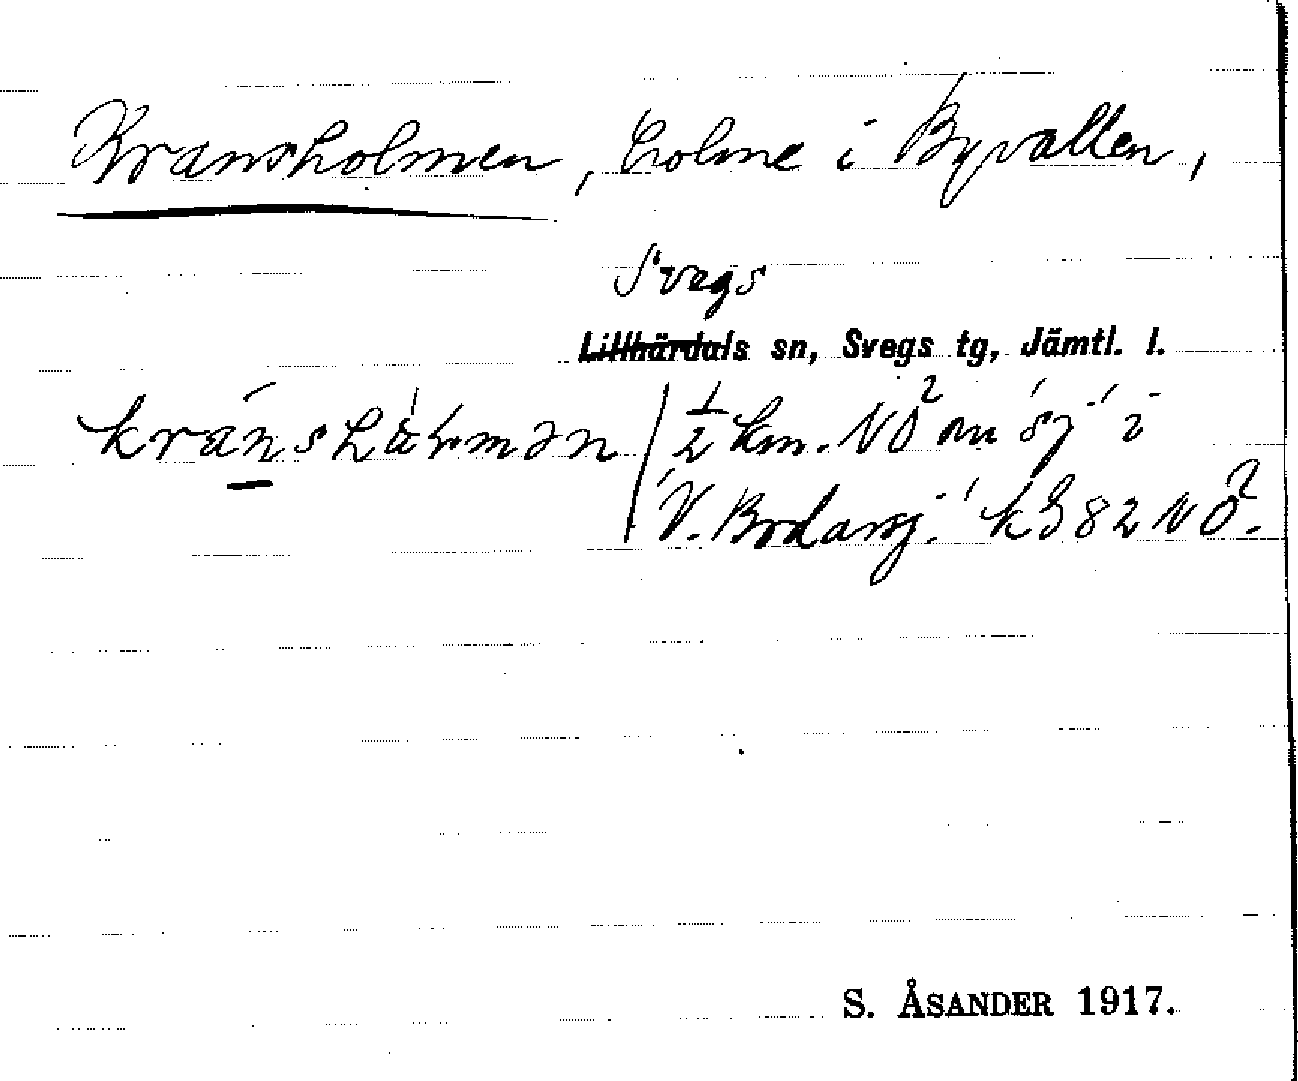 Kransholmen, holme i Byvallen,
Svegs
Lillhärdals sn, Svegs tg, Jämtl. l.
½ km. NO om sj i
V. Brodarsj. k 382 NO.
S. ÅSANDER 1917.